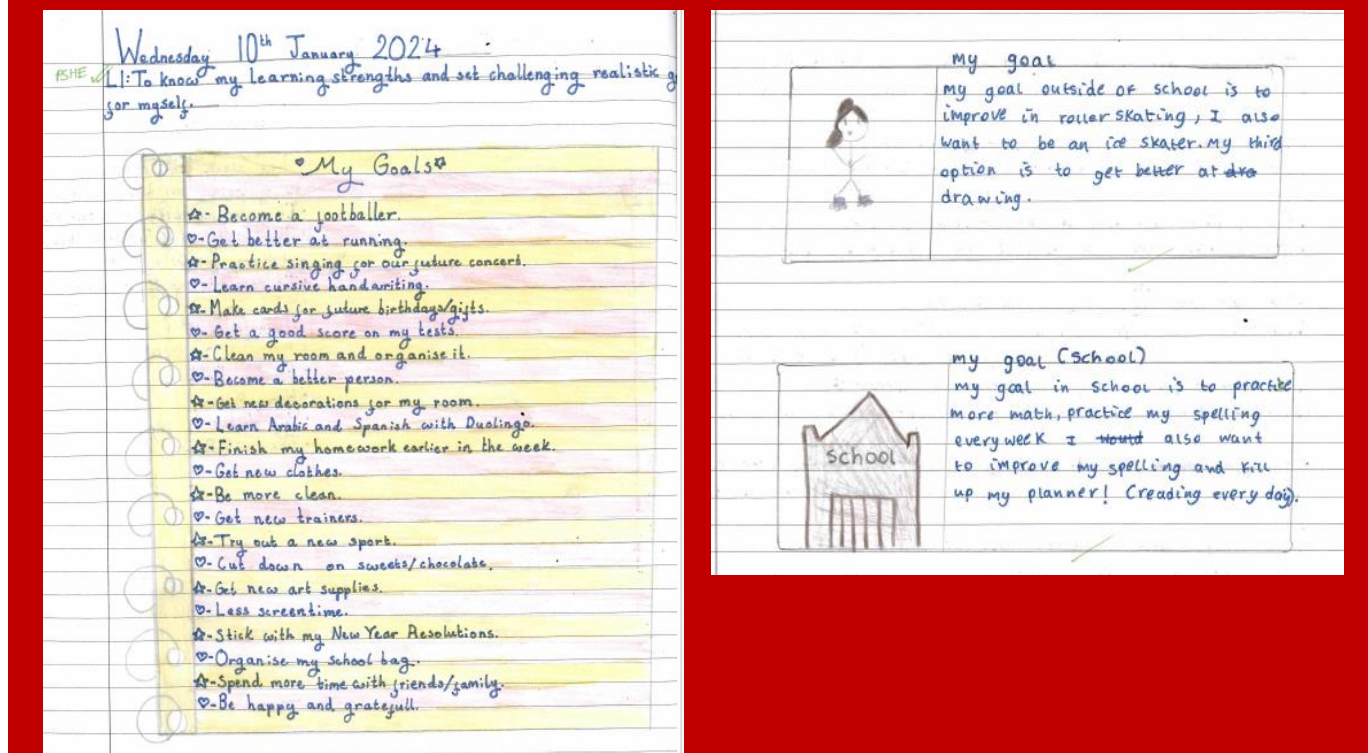 Wednesday 10th January 2024
PSHE
LI: To know my learning strengths and set challenging realistic g
for myself.
My Goals
- Become a footballer.
- Get better at running.
- Practice singing for our future concert.
- Learn cursive handwriting.
- Make cards for future birthdays/gifts.
- Get a good score on my tests.
- Clean my room and organise it.
- Become a better person.
- Get new decorations for my room.
- Learn Arabic and Spanish with Duolingo.
- Finish my homework earlier in the week.
- Get new clothes.
- Be more clean.
- Get new trainers.
- Try out a new sport.
- Cut down on sweets/chocolate.
- Get new art supplies.
- Less screentime.
- Stick with my New Year Resolutions.
- Organise my school bag.
- Spend more time with friends/family.
- Be happy and gratefull.
my goal
my goal outside of school is to
improve in roller skating, I also
want to be an ice skater. my third
option is to get better at dra
drawing.
my goal (school)
my goal in school is to practice
more math, practice my spelling
every week I would also want
to improve my spelling and kill
up my planner! (reading every day).
school